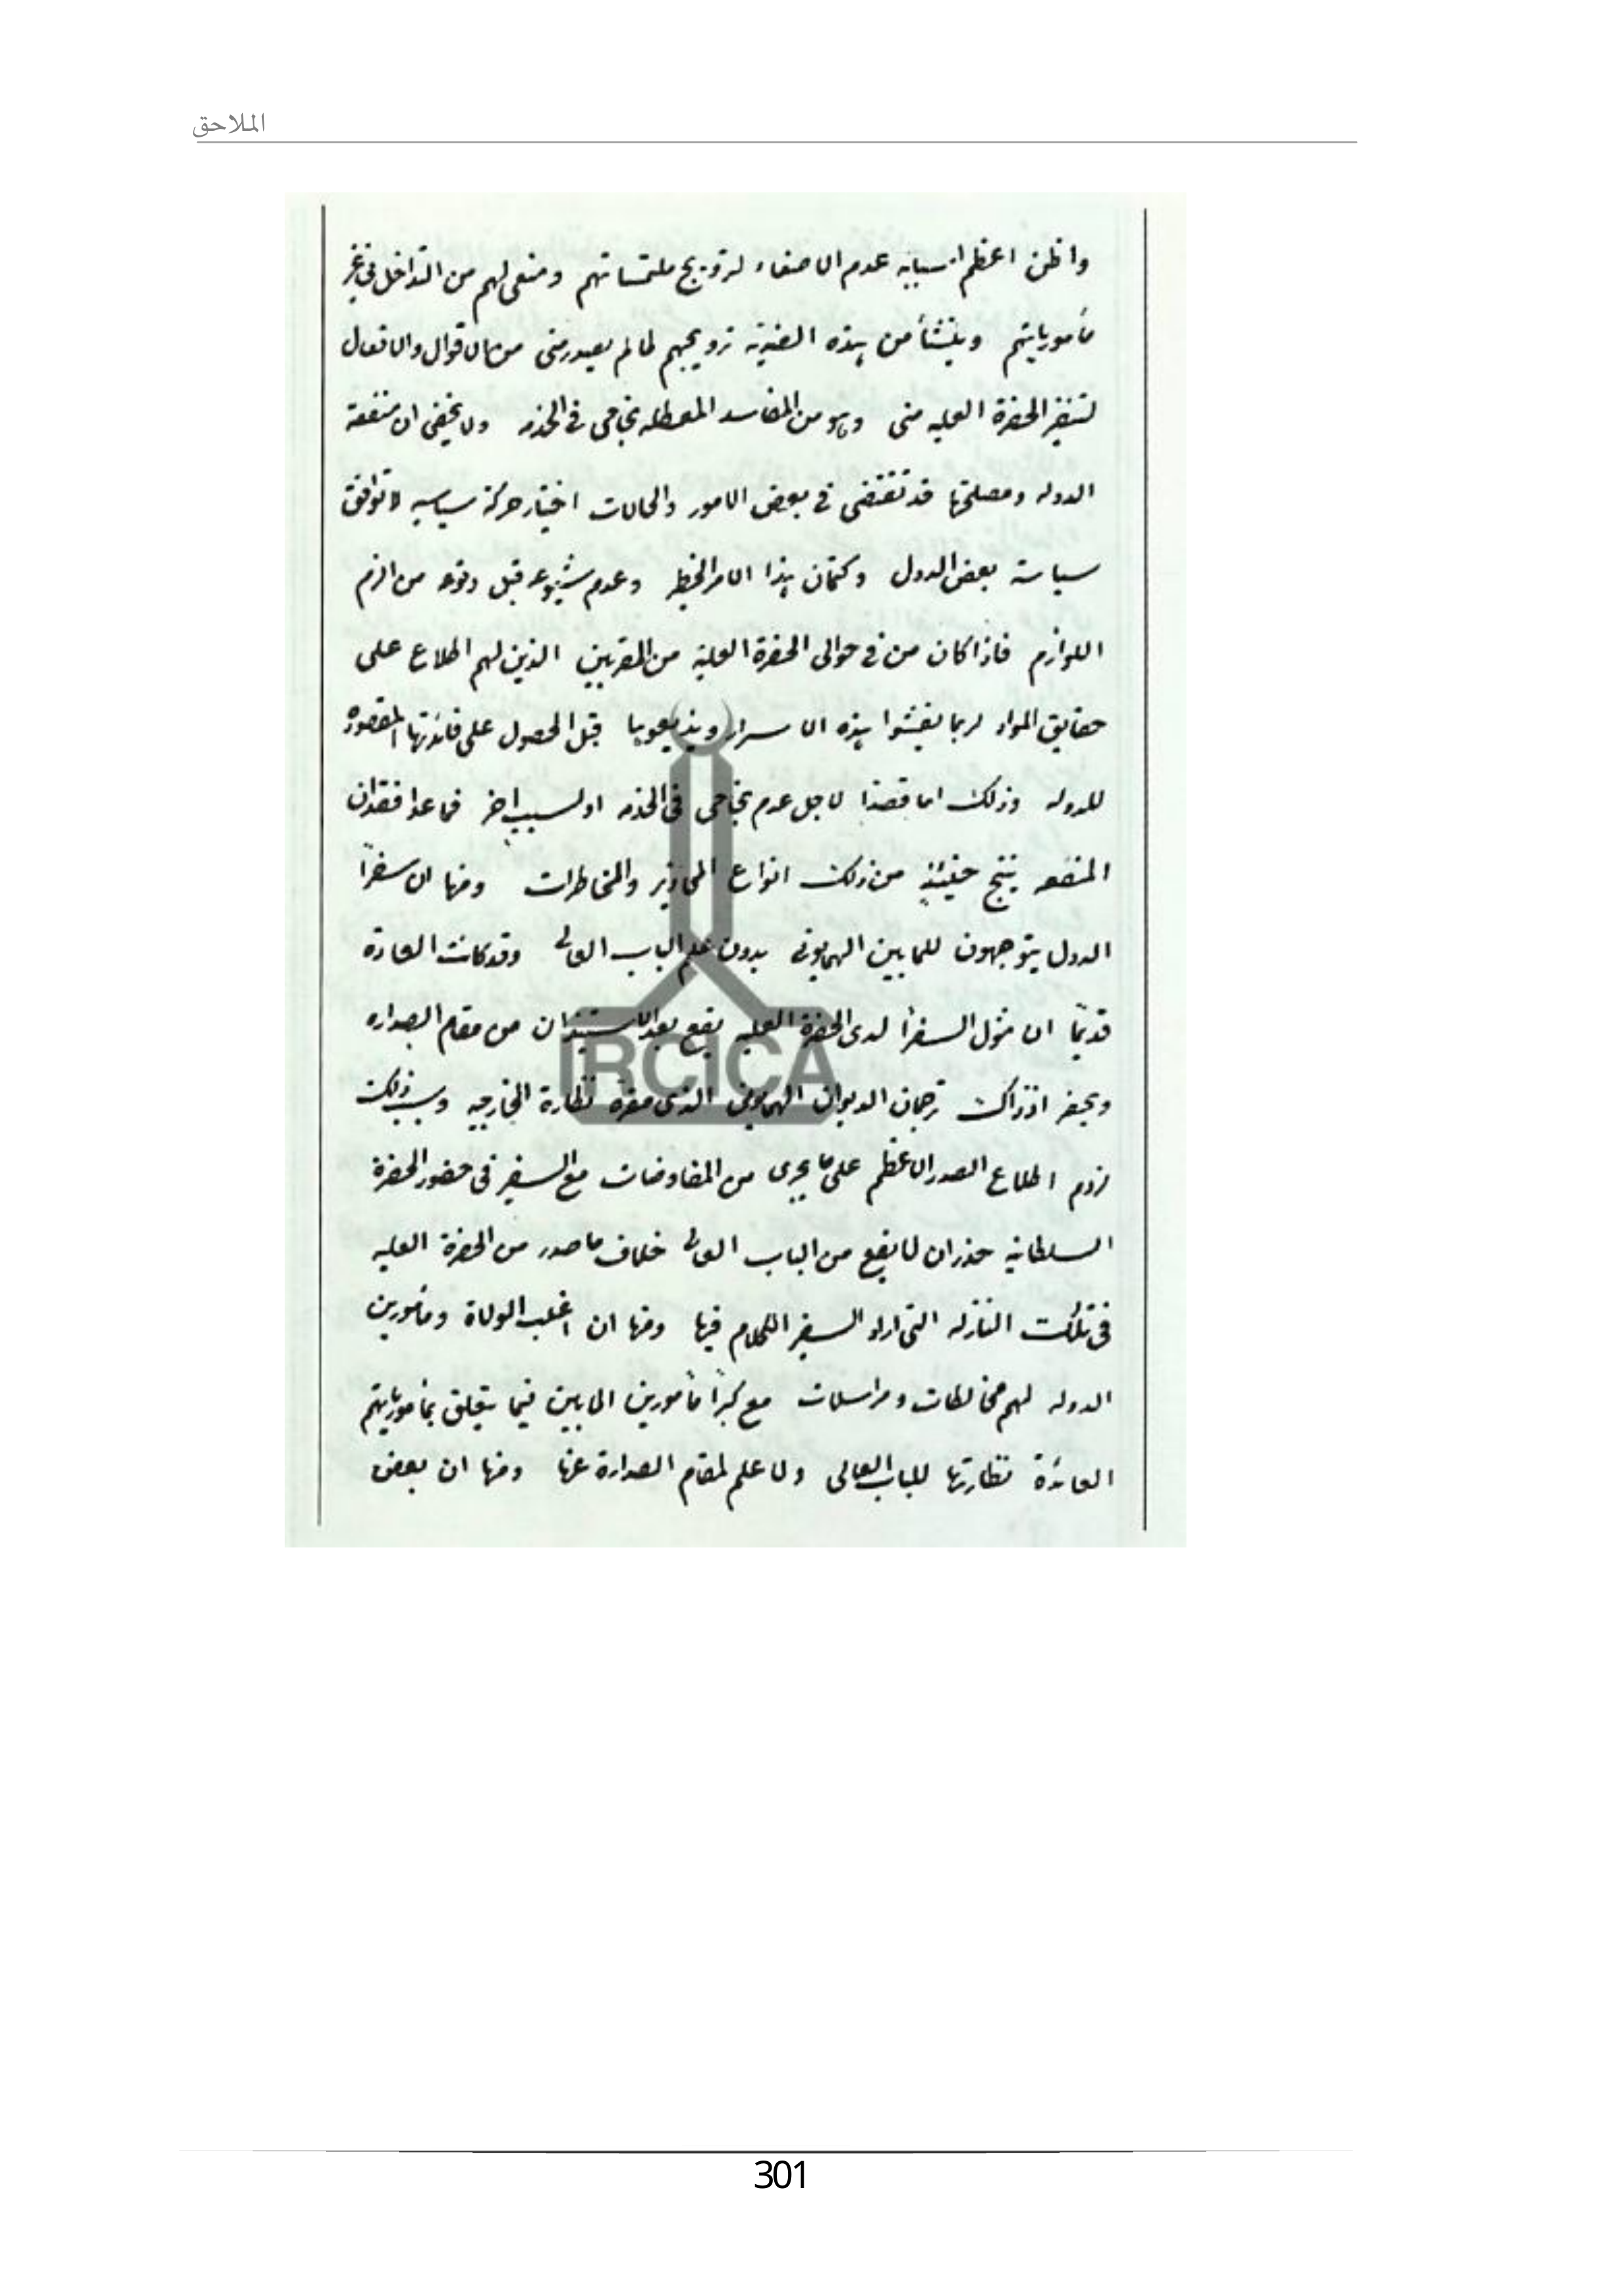 الملاحق
واظن اعظم اسبابه عدم الاصغاء لترويج ملتمساتهم ومنعى لهم من التداخل فى غير
مأمورياتهم وينشأ من هذه الضديه ترويجهم لما لم يصدر منى من الاقوال والافعال
لتنفير الحضرة العليه منى وهو من المفاسد المعطله نجاحى فى الخدمه ولا يخفى ان منفعة
الدوله ومصلحتها قد تقتضى فى بعض الامور والحالات اختيار حركة سياسيه لا توافق
سياسة بعض الدول وكتمان هذا الامر الخطير وعدم شيوعه قبل وقوعه من الزم
اللوازم فاذا كان من فى حوالى الحضرة العليه من المقربين الذين لهم اطلاع على
حقايق المواد لربما يفشوا هذه الاسرار ويذيعوها قبل الحصول على فائدتها المقصوده
للدوله وذلك اما قصدا لاجل عدم نجاحى فى الخدمه او لسبب اخر فما عدا فقدان
المنفعه ينتج حينئذٍ من ذلك انواع المحاذير والمخاطرات ومنها ان سفرآ
الدول يتوجهون للمابين الهمايونى بدون علم الباب العالى وقد كانت العادة
قديمًا ان مثول السفرآ لدى الحضرة العليه يقع بعد الاستيذان من مقام الصداره
ويحضر اذذاك ترجمان الديوان الهمايونى الذى مقره نظارة الخارجيه وسبب ذلك
لزوم اطلاع الصدر الاعظم على ما يجرى من المفاوضات مع السفير فى حضور الحضرة
السلطانيه حذرا من ان يقع من الباب العالى خلاف ما صدر من الحضرة العليه
فى تلك النازله التى اراد السفير الكلام فيها ومنها ان اغلب الولاة ومأمورين
الدوله لهم مخالطات ومراسلات مع كبرآ مأمورين المابين فيما يتعلق بمأمورياتهم
العائدة نظارتها للباب العالى ولا علم لمقام الصدارة عنها ومنها ان بعض
IRCICA
301